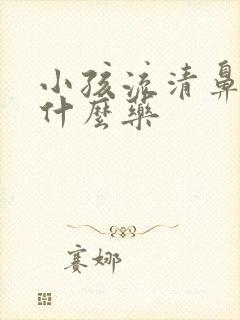 小孩流清鼻
什麼藥
赛娜